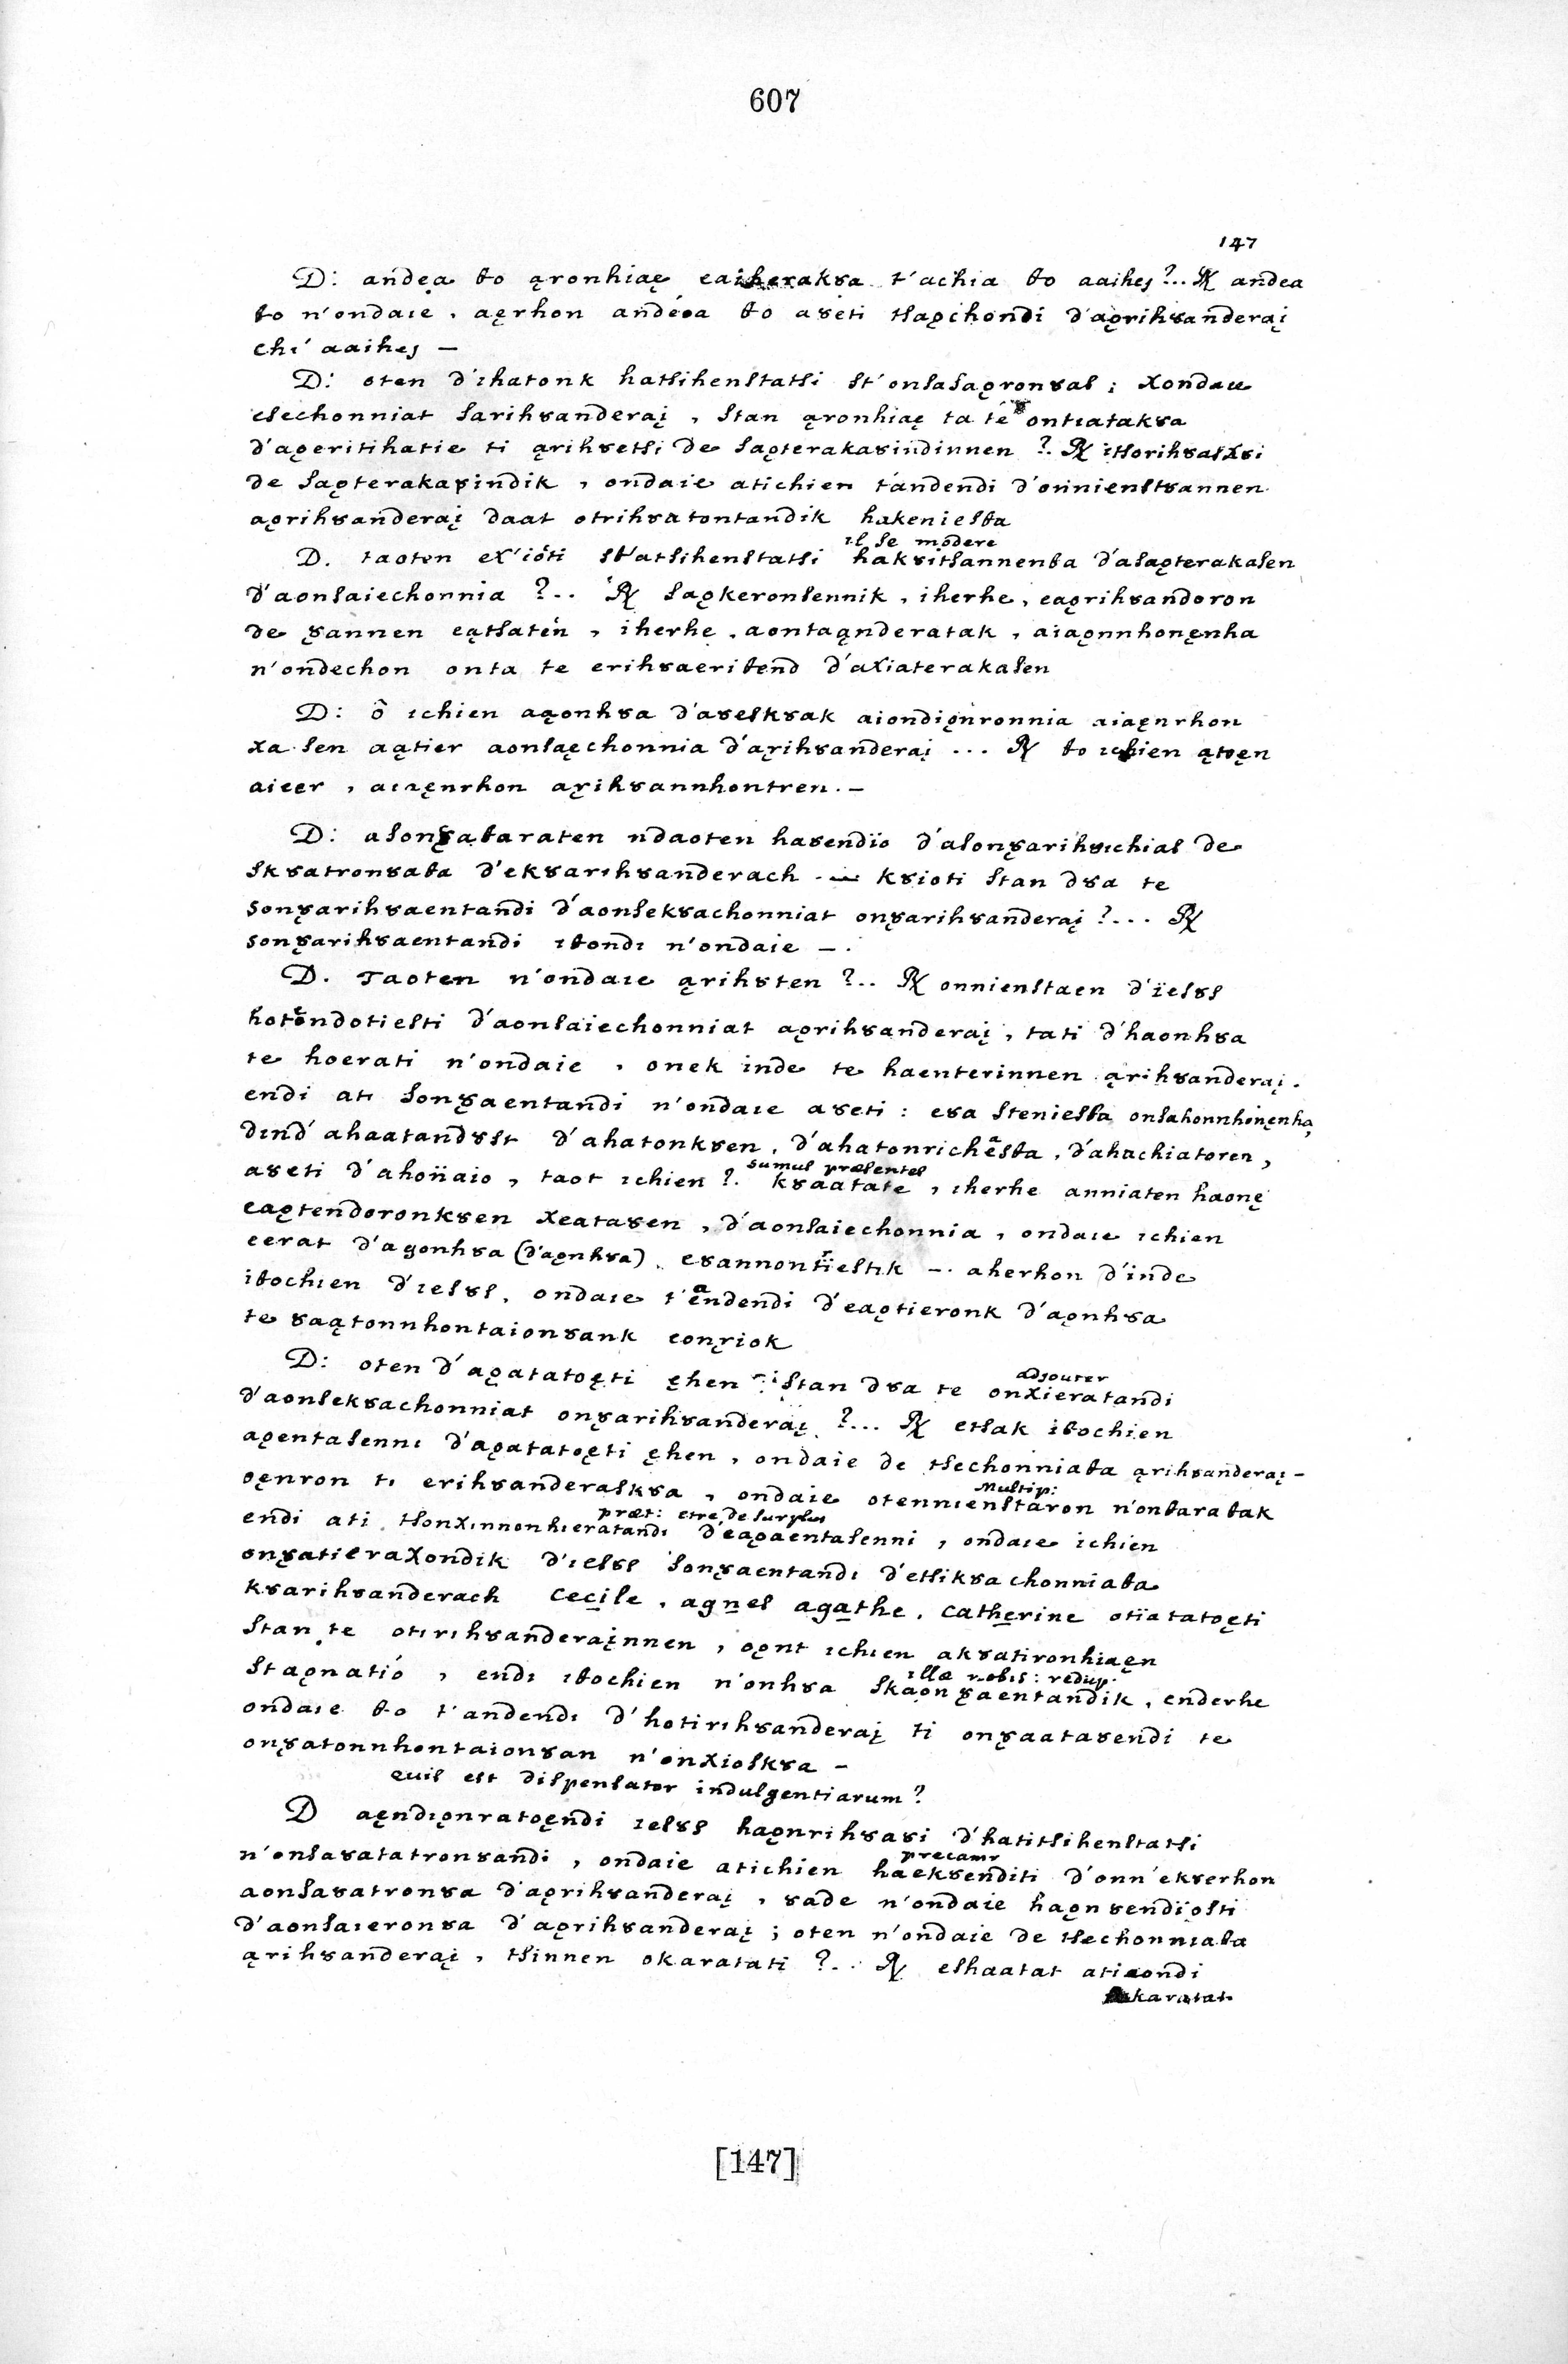 607
147
D: andea to ąronhiaę eaiheraksa t'achia to aaihej ?.. ℟ andea
to n'ondaie, aęrhon andeoa to a8eti tsaochondi d'aorih8anderaį
chi' aaihej —
D: oten d'ihatonk hatsihenstatsi st'onsasaoron8as; xondaie
esechonniat sarih8anderaį, stan ąronhiaę ta te ontiatak8a
d'aoeritihatie ti ąrih8etsi de saoteraka8indinnen ?. ℟ itsorih8asx8i
de saoteraka8indik, ondaie atichien t'andendi d'onnienst8annen
aorih8anderaį daat otrih8atontandik hakeniesta
il se modere
D. taoten ex'ioti st'atsihenstatsi hak8itsannenta d'asaoterakasen
d'aonsaiechonnia ?.. ℟ saokeronsennik, iherhe, eaorih8andoron
de ȣannen eątsaten, iherhe, aontaąnderatak, aiaonnhonęnha
n'ondechon onta te erih8aeritend d'axiaterakasen
D: ô ichien aąonh8a d'a8esk8ak aiondiǫnronnia aiaęnrhon
xa sen aątier aonsaęchonnia d'aȣih8anderaį ... ℟ to ichien ątoęn
aieer, aiaęnrhon aȣih8annhontren. —
D: ason8ataraten ndaoten ha8endïo d'ason8arih8ichias de
sk8atron8ata d'ek8arih8anderach — k8ioti stan d8a te
son8arih8aentandi d'aonsek8achonniat on8arih8anderaį ?... ℟
son8arih8aentandi itondi n'ondaie —.
D. Taoten n'ondaie ąrih8ten ?.. ℟ onnienstaen d'ïes8s
hotendotiesti d'aonsaiechonniat aorih8anderaį, tati d'haonh8a
te hoerati n'ondaie, onek inde te haenterinnen ąrih8anderaį.
endi ati son8aentandi n'ondaie a8eti: e8a steniesta onsahonnhonęnha,
dind' ahaatand8st d'ahatonk8en, d'ahatonrichesta, d'ahachiatoren,
sumus præsentes
a8eti d'ahoñaio, taot ichien ?. k8aatate, iherhe anniaten haonę
eaotendoronk8en xeata8en, d'aonsaiechonnia, ondaie ichien
eerat d'agonh8a (d'aonh8a). e8annontïestik —. aherhon d'inde
itochien d'ies8s, ondaie t'andendi d'eaotieronk d'aonh8a
te 8aątonnhontaion8ank eon8iok
D: oten d'aoatatoęti ęhen ; stan d8a te onxieratandi
adjouter
d'aonsek8achonniat on8arih8anderaį ?... ℟ etsak itochien
aoentasenni d'aoatatoęti ęhen, ondaie de tsechonniata ąrih8anderaį —
oęnron ti erih8anderask8a, ondaie otennienstaron n'ontaratak
Multip:
endi ati tsonxinnonhieratandi d'eaoaentasenni, ondaie ichien
præt: etre de surplus
on8atieraxondik d'ies8s son8aentandi d'etsik8achonniata
k8arih8anderach cecile, agnes agathe, catherine otïatatoęti
stan te otirih8anderaįnnen, oont ichien ak8atironhiaęn
staonatió, endi itochien n'onh8a skaon8aentandik, enderhe
illæ nobis: redup.
ondaie to t'andendi d'hotirih8anderaį ti on8aata8endi te
on8atonnhontaion8an n'onxiosk8a —
quis est dispensator indulgentiarum ?
D aęndiǫnratoęndi ies8s haonrih8a8i d'hatitsihenstatsi
n'onsa8atatron8andi, ondaie atichien haek8enditi d'onn'ek8erhon
precamr
aonsa8atron8a d'aorih8anderaį, 8ade n'ondaie haon8endïosti
d'aonsaieron8a d'aorih8anderaį; oten n'ondaie de tsechonniata
ąrih8anderaį, tsinnen okaratati ?.. ℟ eshaatat atiaondi
karatat
[147]